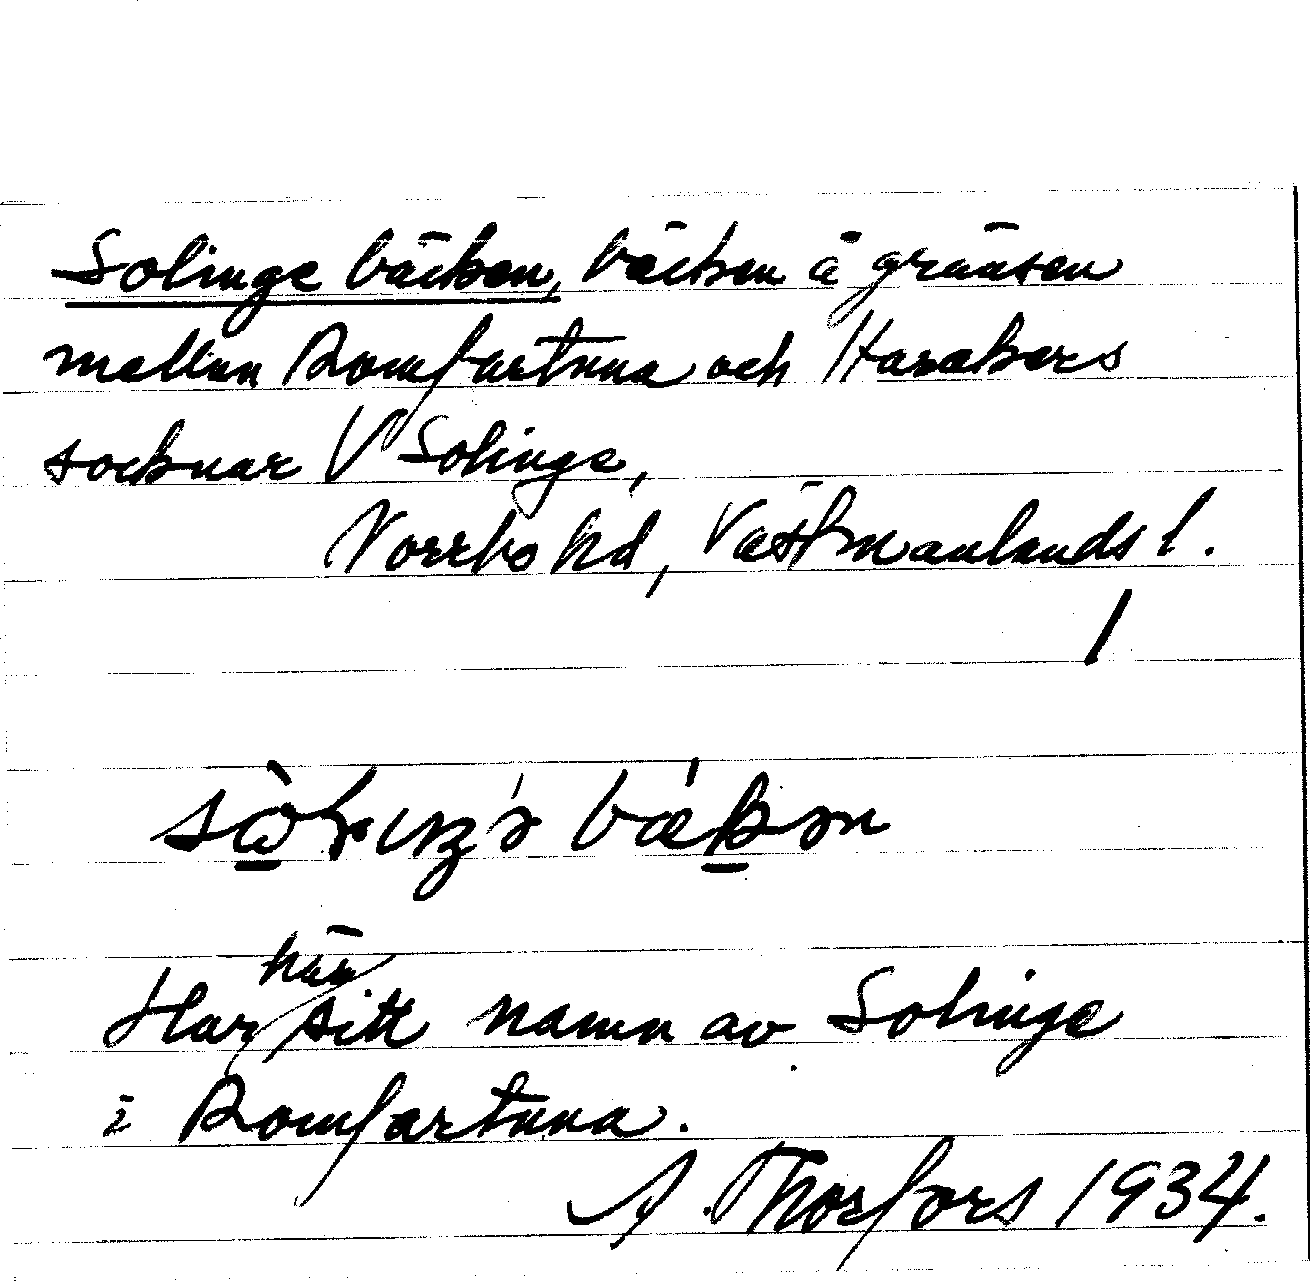 Solinge bäcken, bäcken å gränsen
mellan Romfartuna och Harakers
socknar V Solinge,
Norrbo hd, Västmanlands l.
bäkən
här
Har sitt namn av Solinge
i Romfartuna.
A. Thorfors 1934.